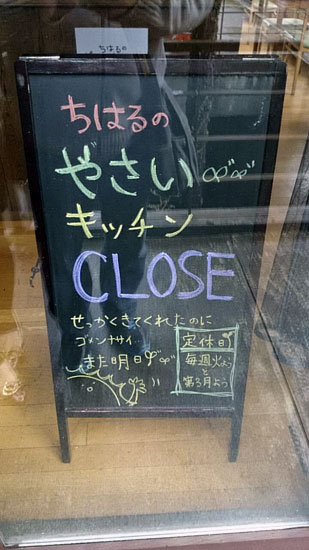 ちはるの
ちはるの
やさい
キッチン
CLOSE
せっかくきてくれたのに
ゴメンナサイ
また明日
定休日
毎週火よう
と
第3月よう